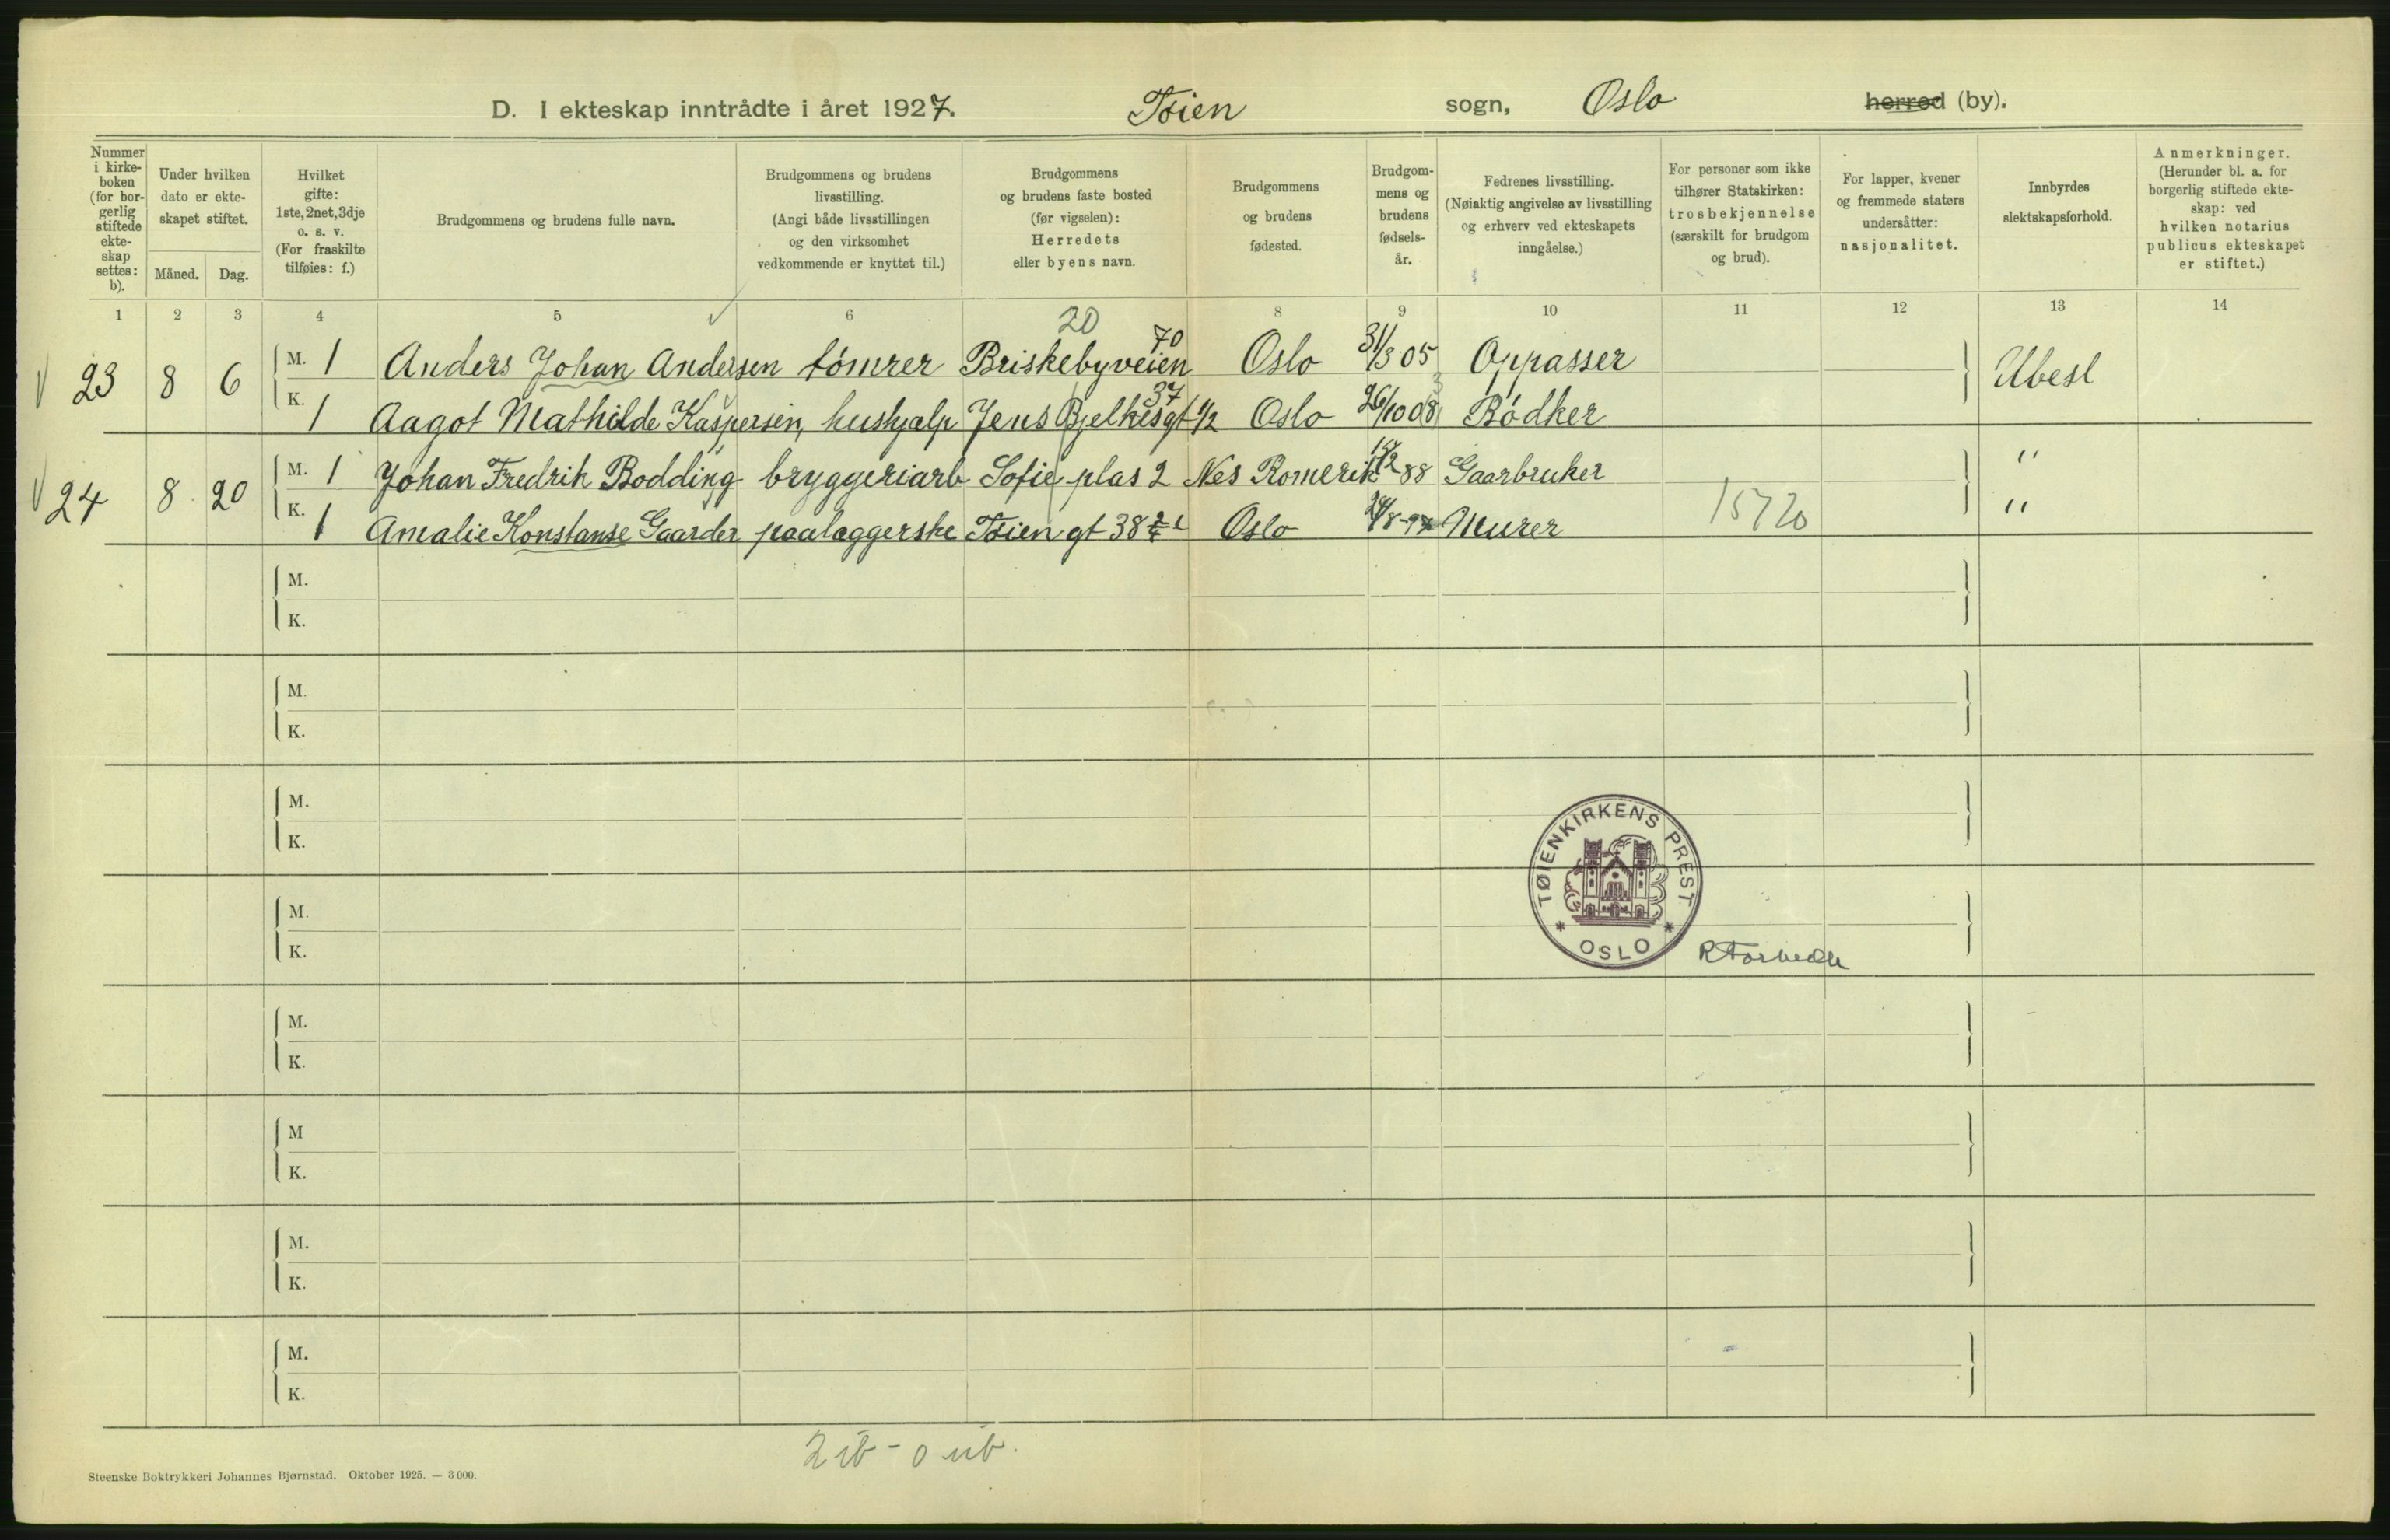 D. I ekteskap inntrådte i året 1927. Tøien sogn, Oslo herred (by).
Nummer i kirke- boken (for bor- gerlig stiftede ekte- skap settes: b).
Under hvilken dato er ekte- skapet stiftet.
Måned. Dag.
Hvilket gifte: 1ste, 2net, 3dje o. s. v. (For fraskilte tilføies: f.)
Brudgommens og brudens fulle navn.
Brudgommens og brudens livsstilling. (Angi både livsstillingen og den virksomhet vedkommende er knyttet til.)
Brudgommens og brudens faste bosted (før vigselen): Herredets eller byens navn.
Brudgommens og brudens fødested.
Brudgom- mens og brudens fødsels- år.
Fedrenes livsstilling. (Nøiaktig angivelse av livsstilling og erhverv ved ekteskapets inngåelse.)
For personer som ikke tilhører Statskirken: trosbekjennelse (særskilt for brudgom og brud).
For lapper, kvener og fremmede staters undersåtter: nasjonalitet.
Innbyrdes slektskapsforhold.
Anmerkninger. (Herunder bl. a. for borgerlig stiftede ekte- skap: ved hvilken notarius publicus ekteskapet er stiftet.)
1 2 3 4 5 6 7 8 9 10 11 12 13 14
20
23 8 6 M. 1 Anders Johan Andersen tømrer Briskebyveien 70 Oslo 31/3 05 Oppasser Ubesl
K. 1 Aagot Mathilde Kaspersen, hushjælp Jens Bjelkesgt 37 1/2 Oslo 26/10 08 Bødker
24 8 20 M. 1 Johan Fredrik Bodding bryggeriarb Sofie plas 2 Nes Romerik 88 Gaarbruker "
K. 1 Amalie Konstanse Gaarder paalæggerske Tøien gt 38 Oslo Murer 15720 "
M.
K.
M.
K.
M.
K.
M.
K.
M.
K.
M
K.
M.
K.
M.
K.
TØIENKIRKENS PREST
* OSLO *
2 ib - 0 ub.
Steenske Boktrykkeri Johannes Bjørnstad. Oktober 1925. — 3000.